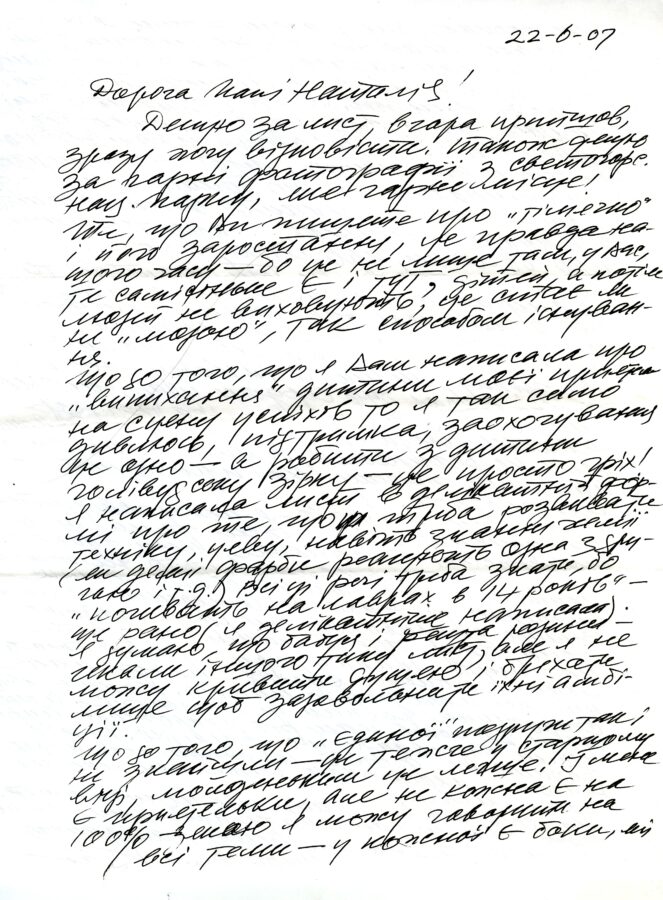 22-6-07
Дорога Пані Наталіє!
Дякую за лист, вчора прийшов,
зразу хочу відповісти. Також дякую
за гарні фотографії з
нац. парку, яке гарне місце!
Те, що Ви пишете про
і його заростання, це правда на-
шого часу — бо це не лише там, у Вас,
Те самісіньке є і тут, дітей, а потім
людей не виховують, це стає
"модою", так способом існуван-
ня.
Що до того, що я Вам написала про
"випихання" дитини моєї
на сцену успіхів то я так само
дивлюсь, підтримка, заохочування
це одно — а робити з дитини
голівудську зірку — це просто гріх!
Я написала листа в делікатній фор-
мі про те, що треба розвивати
техніку, уяву, навіть знання хемії
(як деякі фарби реагують одна з дру-
гою і т.д.) Всі ці речі треба знати, бо
"почивать на лаврах в 14 років" —
ще рано (я делікатніше написала).
Я думаю, що бабця і решта родини —
чекали іншого типу лист, але я не
можу кривити душею і брехати
лише щоб задовольнити їхні амбі-
ції.
Що до того, що "єдиної" подруги так і
не знайшли — це тяжче у старшому
віці, молоденьким це легше. І мене
є приятельки, але не кожна є на
100% — знаю я можу говорити на
всі теми — у кожної є боки, які